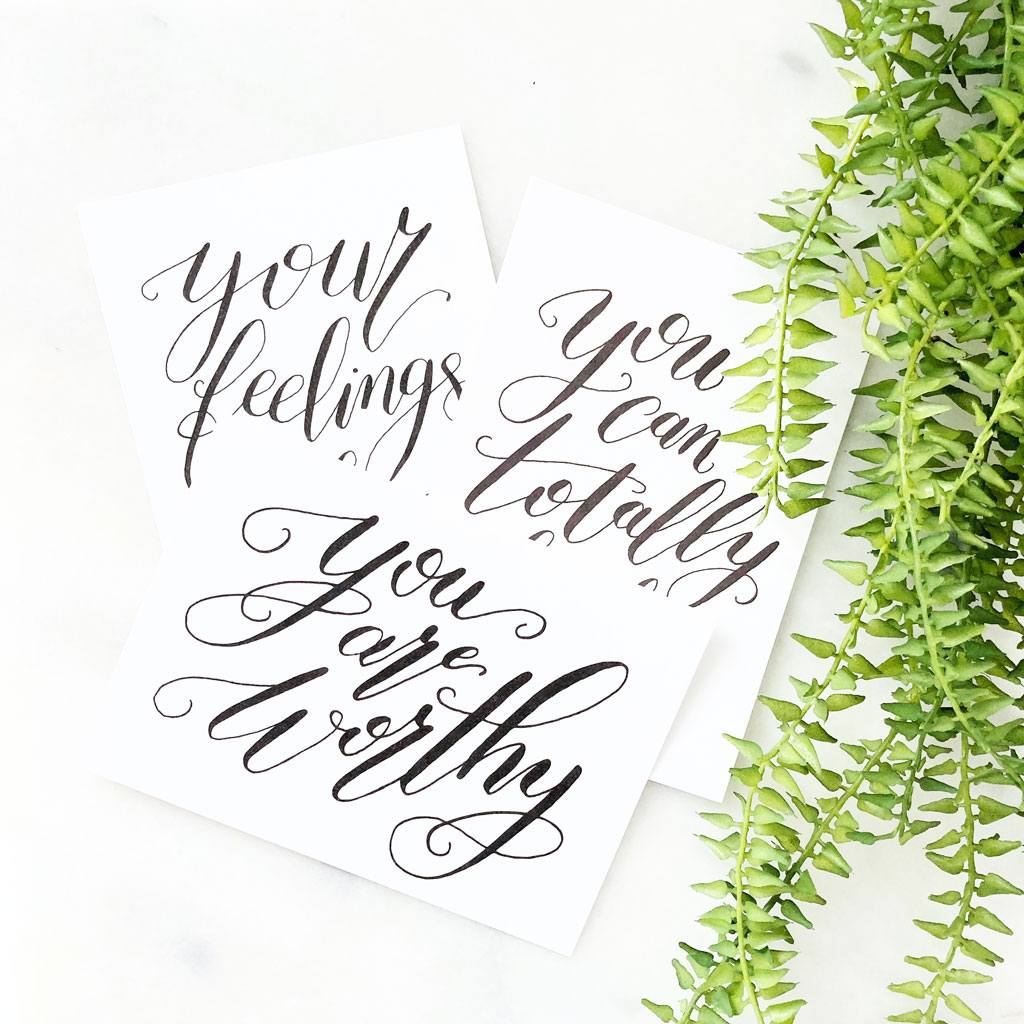 your
feelings
you
can
totally
You
are
worthy